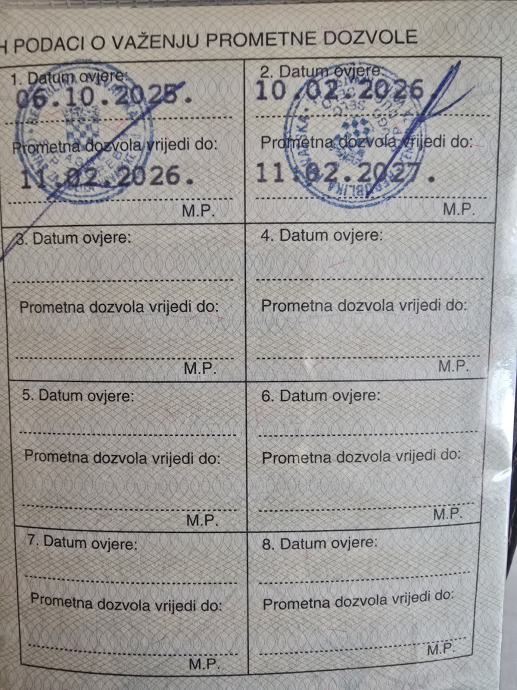 H PODACI O VAŽENJU PROMETNE DOZVOLE
1. Datum ovjere:
06.10.2025.
Prometna dozvola vrijedi do:
11.02.2026.
M.P.
2. Datum ovjere:
10.02.2026
Prometna dozvola vrijedi do:
11.02.2027.
M.P.
3. Datum ovjere:
Prometna dozvola vrijedi do:
M.P.
4. Datum ovjere:
Prometna dozvola vrijedi do:
M.P.
5. Datum ovjere:
Prometna dozvola vrijedi do:
M.P.
6. Datum ovjere:
Prometna dozvola vrijedi do:
M.P.
7. Datum ovjere:
Prometna dozvola vrijedi do:
M.P.
8. Datum ovjere:
Prometna dozvola vrijedi do:
M.P.